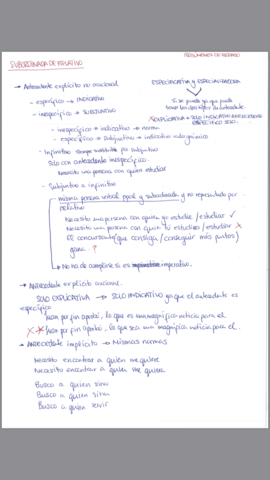 RESÚMENES DE REPASO
SUBORDINADA DE RELATIVO
→ Antecedente explícito no oracional
ESPECIFICATIVA Y
- específico → INDICATIVO
- inespecífico → SUBJUNTIVO
Si se puede ya que puede
EXPLICATIVA → SOLO INDICATIVO ANTECEDENTE
ESPECÍFICO
- inespecífico + indicativo → norma
- específico + subjuntivo → indicativo
- Infinitivo siempre sustituible por subjuntivo
Solo con antecedente inespecífico
Necesito una persona con quien estudiar
- Subjuntivo o infinitivo
misma persona verbal ppal y subordinada y no representado por
relativo
Necesito una persona con quien yo estudie / estudiar ✓
Necesito una persona con quien tú estudies / estudiar X
El concursante que consiga / conseguir más puntos /
gana ?
→ No ha de cumplirse si es imperativo.
→ ANTECEDENTE explícito oracional
SOLO EXPLICATIVA → SOLO INDICATIVO ya que el antecedente es
específico
Juan por fin aprobó, lo que es una magnífica noticia para él
X Juan por fin aprobó, lo que sea una magnífica noticia para él.
→ ANTECEDENTE implícito → Mismas normas
Necesito encontrar a quien me quiere
Necesito encontrar a quien me quiera
Busco a quien sirva
Busco a quien sirva
Busco a quien servir